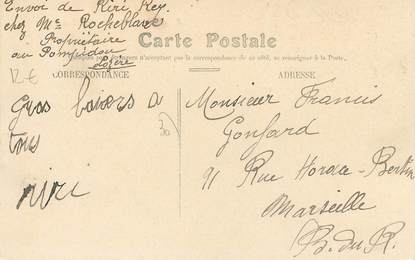 Envoi de Kiri Rey
chez Me Rocheblave
Propriétaire
au Pompidou
Lozère
Carte Postale
Tous les pays étrangers n'acceptent pas la correspondance de ce côté, se renseigner à la Poste.
CORRESPONDANCE
ADRESSE
12 €
Gros baisers a
tous
Kiri
30
Monsieur Francis
Gonfard
91 Rue Horace-Bertin
Marseille
B. du R.